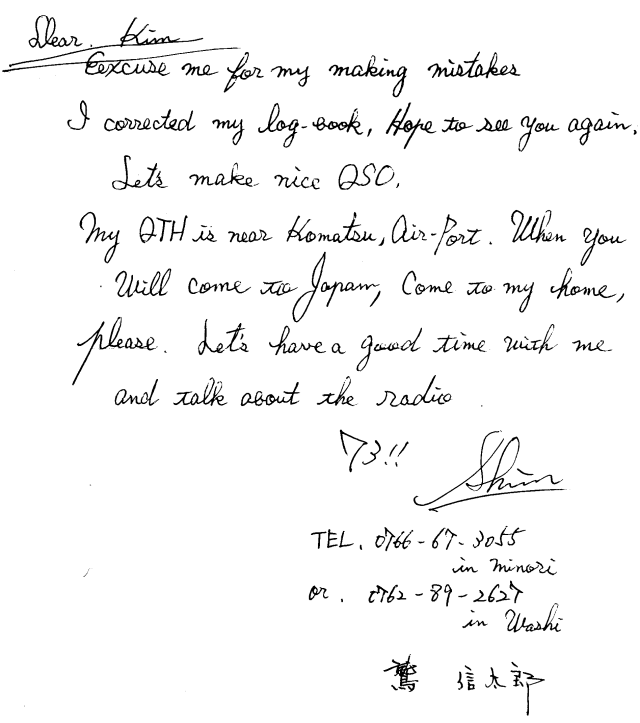 Dear. Kim
Eexcuse me for my making mistakes
I corrected my log-book, Hope to see you again.
Let's make nice QSO.
My QTH is near Komatsu, Air-Port. When you
Will come to Japan, Come to my home,
please. Let's have a good time with me
and talk about the radio.
73!!
Shin
TEL. 0766-67-3055
in minori
or. 0762-89-2627
in Washi
鷲 信太郎